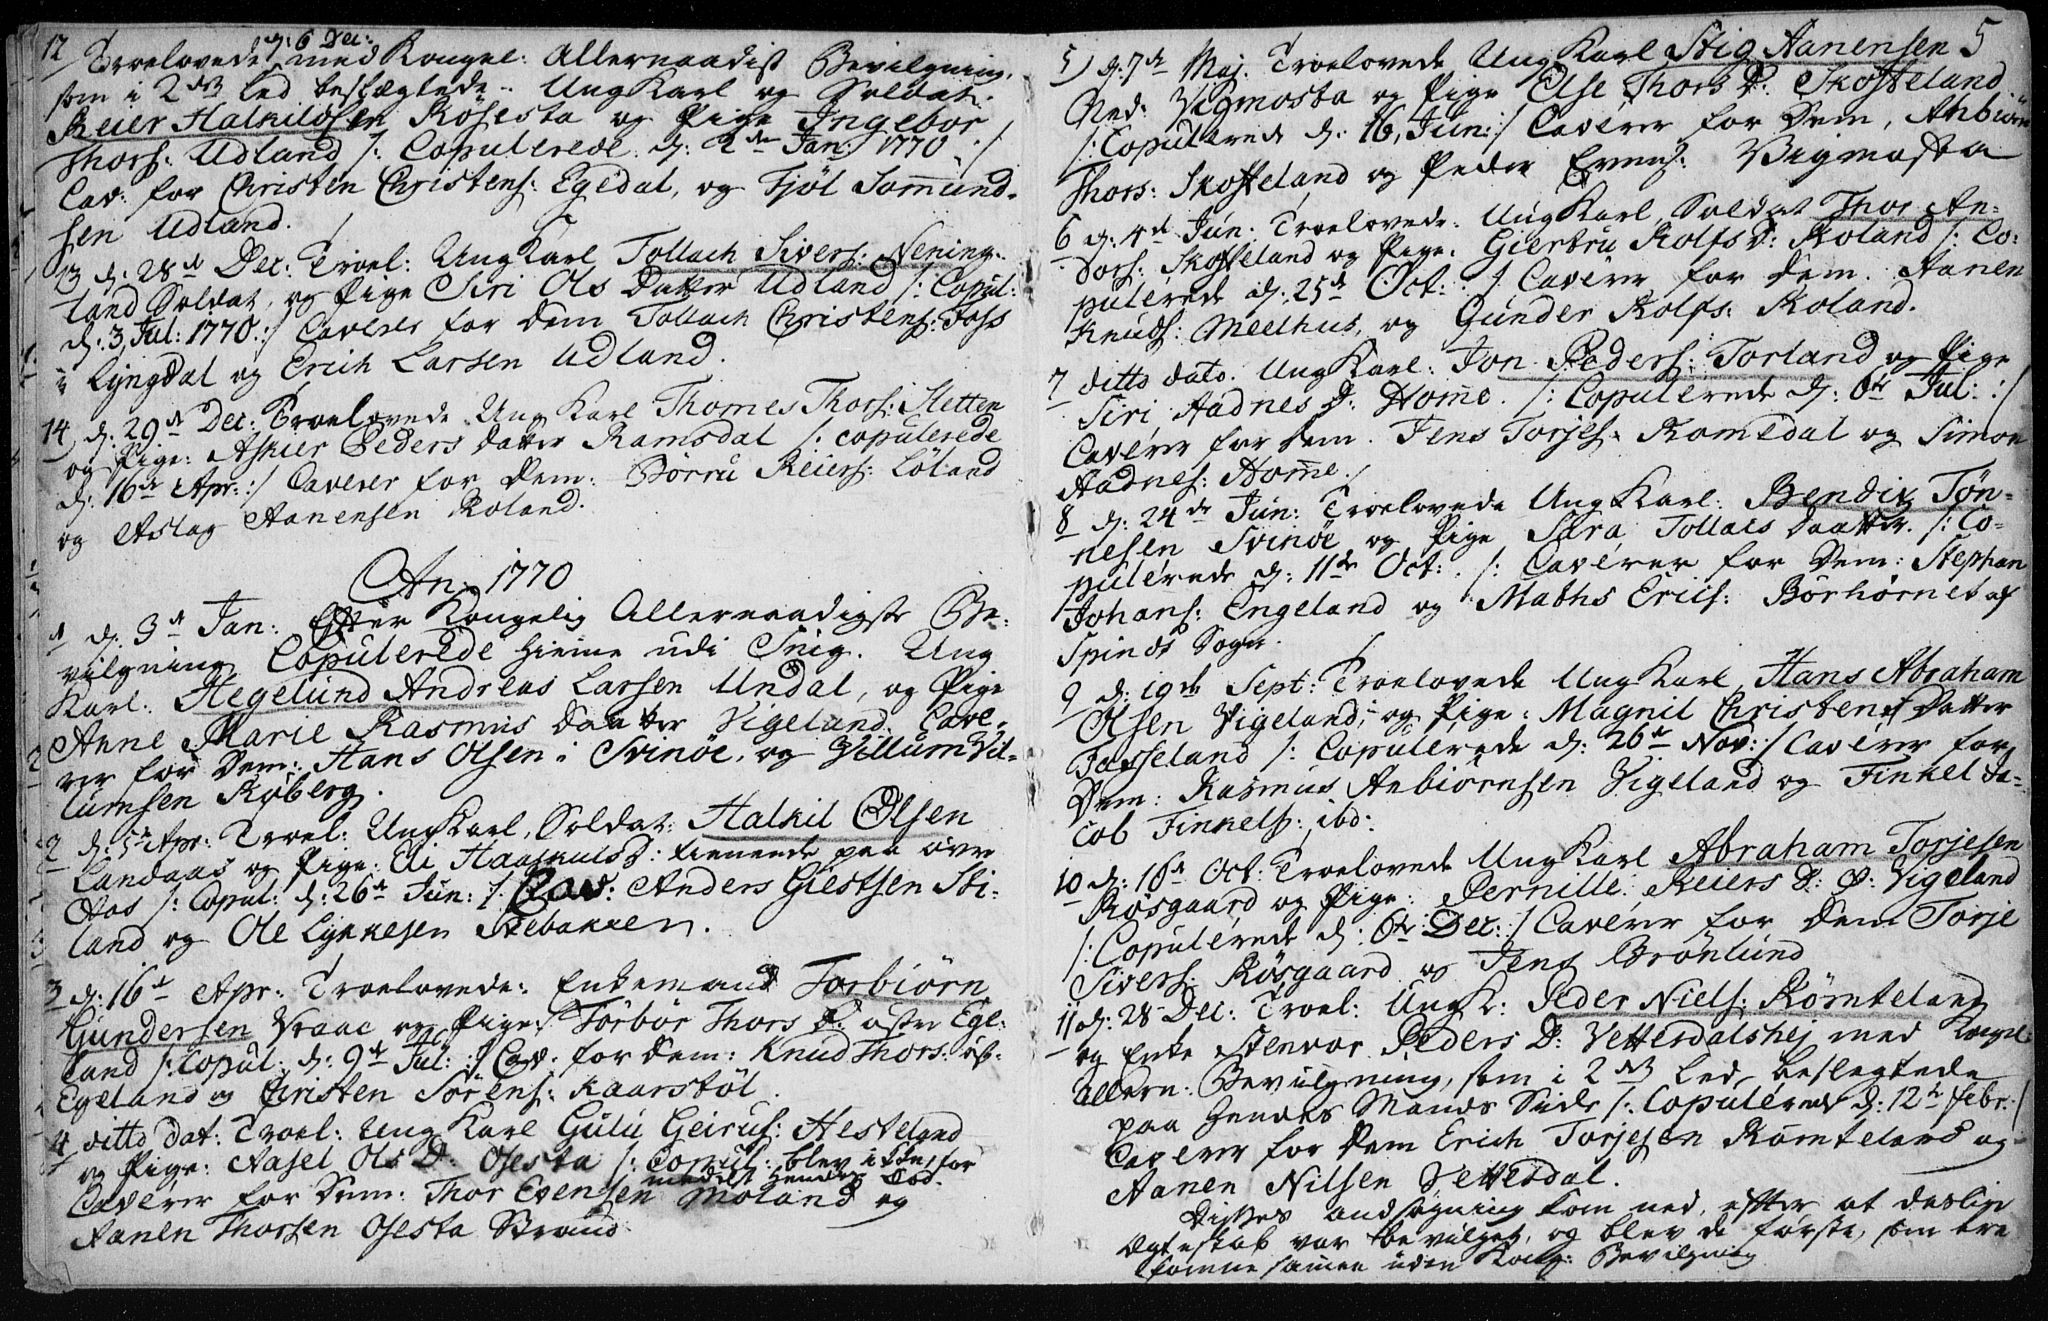 12 Troelovede d: 6 Dec: med Kongel: Allernaadist Bevilgning,
som i 2det Led besleglede. Ung Karl og Soldat.
Reier Halkildsen Røsesta og Pige Ingebor
Thors: Udland /: Copulerede d: 2de Jan: 1770 :/
Cav: for Christen Christens: Egedal, og Fjøl Samund-
sen Udland.
13 d: 28de Dec: Troel: Ung Karl Tollach Sivers: Nening-
land Soldat, og Pige Siri Ols Datter Udland /: Copul:
d: 3 Jul: 1770 :/ Caverer for dem Tollach Christens: Foss
i Lyngdal og Erich Larsen Udland.
14 d: 29de Dec: Troelovede Ung Karl Thomes Thors: Sletten
og Pige: Askier Peders Datter Ramsdal /: copulerede
d: 16de Apr: :/ Caverer for Dem: Børru Reiers: Løland
og Aslag Aanensen Roland.
An: 1770
1 d: 3de Jan: Efter Kongelig Allernaadigste Be-
vilgning Copulerede hieme udi Snig. Ung
Karl. Hegelund Andreas Larsen Undal, og Pige
Anne Marie Rasmus Daatter Vigeland. Cave-
rer for Dem: Hans Olsen i Svinøe, og Villum Vil-
lumsen Røberg.
2 d: 5te Apr: Troel: Ung Karl, Soldat: Halkil Olsen
Landaas og Pige: Eli tienende paa øvre
Aas /: Copul: d: 26de Jun: /: Cav: Anders Giestsen Sti-
land og Ole Lykkesen Stebakken.
3 d: 16de Apr: Troelovede: Enkemand Torbiørn
Gundersen Vraae og Pige: Torbor Thors D: østre Ege-
land /: Copul: d: 9de Jul: :/ Cav: for dem: Knud Thors:
Egeland og Christen Sørens: Kaarstøl.
4 ditto dat: Troel: Ung Karl Gulu Geirus: Hesteland
og Pige: Aasel Ols D: Osesta /: Copul: blev i for
medelst hendes Død.
Caverer for Dem: Thor Evensen Moland og
Aanen Thorsen Osesta Strand
5
5) d: 7de Maj. Troelovede Ung Karl Stig Aanensen
Ned: Vigmosta og Pige Else Thors D: Skofteland
/: Copulerede d: 16, Jun: :/ Caverer for Dem, Anbiørn
Thors: Skofteland og Peder Evens: Vigmosta
6 d: 4de Jun: Troelovede: Ung Karl, Soldat Thor An-
dors: Skofteland og Pige: Giertru Rolfs D: Roland /: Co-
pulerede d: 25de Oct: :/ Caverer for dem. Aanen
Knuds: Meelhus, og Gunder Rolfs: Roland.
7 ditto dato. Ung Karl: Jon Peders: Torland og Pige
Siri Aadnes D: Home. /: Copulerede d: 6te Jul: :/
Caverer for dem. Jens Torjes: Romedal og Simon
Aadnes: Home.
8 d: 24de Jun: Troelovede Ung Karl: Bendix Tøn-
nesen Svinøe og Pige Sara Tollacs Daatter. /: Co-
pulerede d: 11te Oct: /: Caverer for Dem: Stephan
Johans: Engeland og Maths Erics: Børhørnet af
Spinds Sogn.
9 d: 19de Sept: Troelovede Ung Karl, Hans Abraham
Olsen Vigeland, og Pige: Magnil Christens Datter
Fasseland /: Copulerede d: 26de Nov: :/ Caverer for
Dem: Rasmus Anbiørnsen Vigeland og Finkel Ja-
cob Finkels: ibd:
10 d: 18de Oct: Troelovede Ung Karl Abraham Torjesen
Røsgaard og Pige: Pernille Reiers D: Ø: Vigeland
/: Copulerede d: 6te Dec: :/ Caverer for Dem Torje
Sivers: Røsgaard og Jens Brønlund
11 d: 28 Dec: Troel: Ung K: Peder Niels: Rømteland
og Enke Stenvor Peders D: Vetterdalshej med Kongel:
Allern: Bevilgning, som i 2det Led beslegtede
paa hendes Mands Side /: Copulered d: 12te Febr: :/
Caverer for Dem Erich Torjesen Rømteland og
Aanen Nilsen Vetterdal.
Disses ansøgning kom ned, efter at deslige
Ægteskab var bevilget, og blev de første, som
komme samen uden Kong: Bevilgning